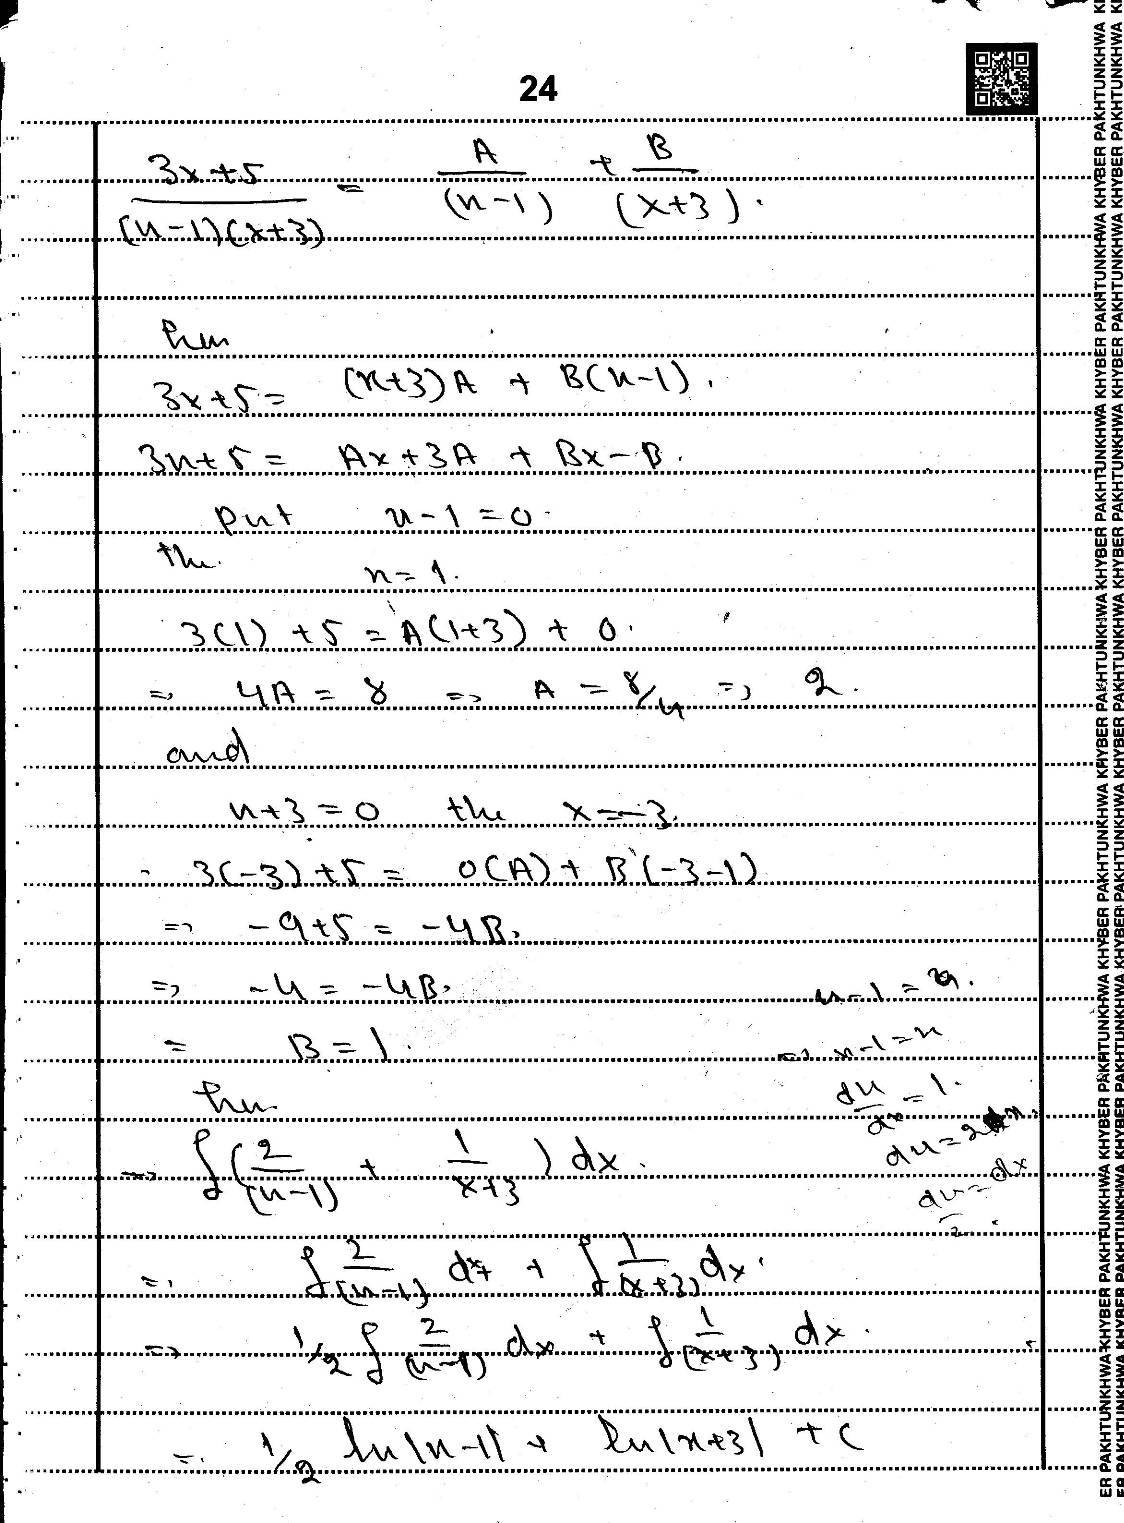 24
3x+5 / (x-1)(x+3) = A / (x-1) + B / (x+3).
then
3x+5 = (x+3)A + B(x-1).
3x+5 = Ax+3A + Bx-B.
put x-1=0.
the.
x=1.
3(1)+5 = A(1+3) + 0.
=> 4A = 8 => A = 8/4 => 2.
and
x+3=0 the x=-3.
3(-3)+5 = 0(A) + B(-3-1)
=> -9+5 = -4B.
=> -4 = -4B.
= B = 1.
then
=> ∫(2/(x-1) + 1/(x+3)) dx.
=> ∫ 2/(x-1) dx + ∫ 1/(x+3) dx.
=> 1/2 ∫ 2/(x-1) dx + ∫ 1/(x+3) dx.
=. 1/2 ln|x-1| + ln|x+3| + C
=> x-1=u
du/dx = 1.
du=2
du/2 = dx
KHYBER PAKHTUNKHWA KHYBER PAKHTUNKHWA KHYBER PAKHTUNKHWA KHYBER PAKHTUNKHWA KHYBER PAKHTUNKHWA KHYBER PAKHTUNKHWA